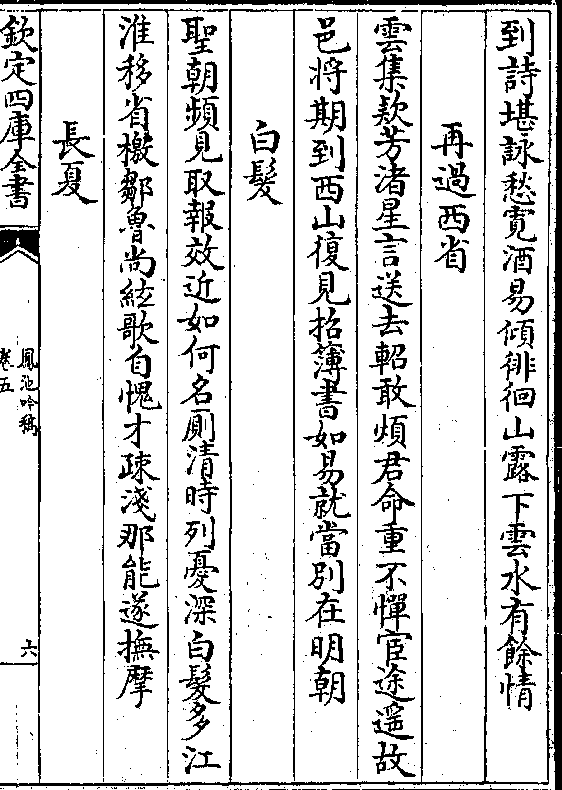 到詩堪詠愁寛酒易傾徘徊山露下雲水有餘情
再過西省
雲集欵芳渚星言送去軺敢煩君命重不憚宦途遥故
邑將期到西山復見招簿書如易就當別在明朝
白髪
聖朝頻見取報效近如何名厠清時列憂深白髪多江
淮移省檄鄒魯尚絃歌自愧才疎淺那能遂撫摩
長夏
欽定四庫全書
鳳池吟稿
卷五
六